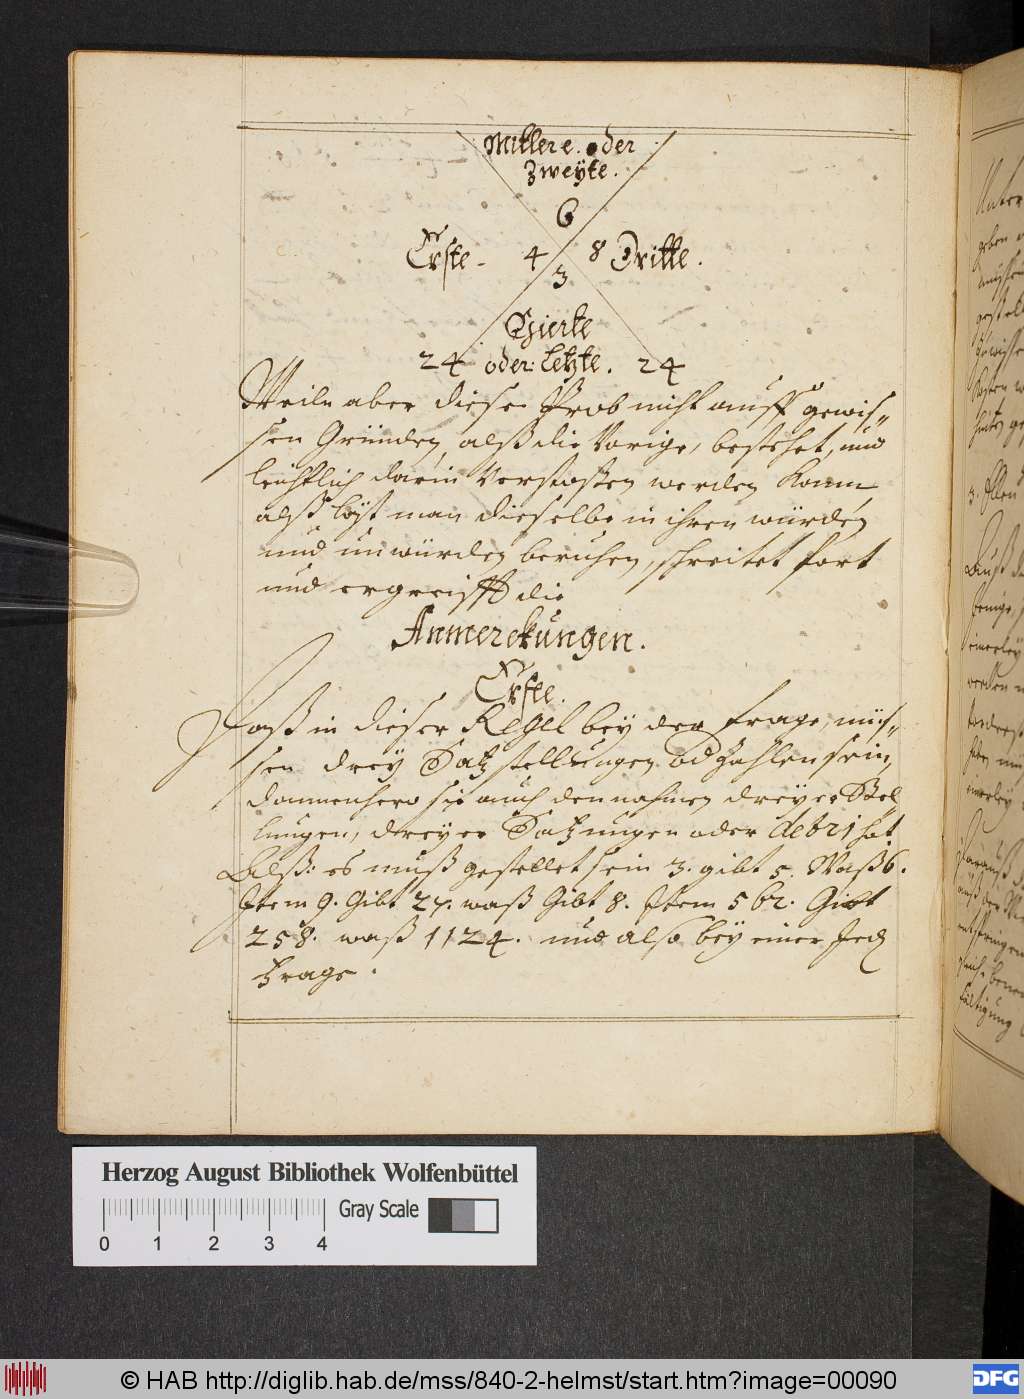 Mitlere. oder
Zweÿte.
6
Erste - 4 8 Dritte.
3
Vierte
24 oder: letzte. 24
Weiln aber diese Prob nicht auff gewis-
sen Gründen, alß die Vorige, bestehet, und
leichtlich darin Verstoßen werden kann
alß läst man dieselbe in ihren würden
und unwürden beruhen, schreitet fort
und ergreifft die
Anmerckungen.
Erste.
Daß in dieser Regel bey der frage, müs-
sen drey Satz stellungen od Zahlen sein,
dannenhero sie auch den nahmen dreyer Stel-
lungen, dreyer Satzungen oder detri hat
Alß: es muß gestellet sein 3. gibt 5. Waß 6.
Item 9. Gibt 27. waß Gibt 8. Item 562. Gibt
258. waß 1124. und also bey einer Jed
frage.
Herzog August Bibliothek Wolfenbüttel
Gray Scale
0 1 2 3 4
© HAB http://diglib.hab.de/mss/840-2-helmst/start.htm?image=00090
DFG